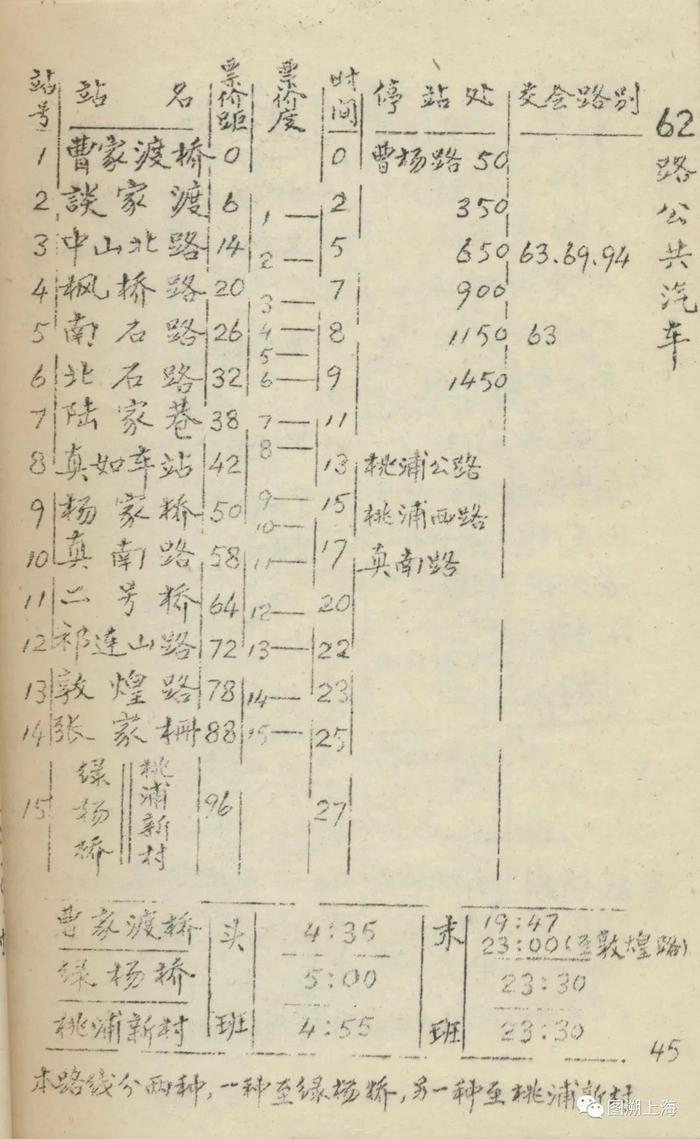 62路公共汽车
站号 站名 票价距 票价度 时间 停站处 交会路别
1 曹家渡桥 0 0 曹杨路 50
2 談家渡 6 1 2 350
3 中山北路 14 2 5 650 63.69.94
4 枫桥路 20 3 7 900
5 南石路 26 4 8 1150 63
5
6 北石路 32 6 9 1450
7 陆家巷 38 7 11
8 真如车站 42 8 13 桃浦公路
9 杨家桥 50 9 15 桃浦西路
10
10 真南路 58 11 17 真南路
11 二号桥 64 12 20
12 祁连山路 72 13 22
13 敦煌路 78 14 23
14 张家栅 88 15 25
15 绿杨桥 桃浦新村 96 27
曹家渡桥 头班 4:35 末班 19:47
23:00(至敦煌路)
绿杨桥 5:00 23:30
桃浦新村 4:55 23:30
45
本路线分两种,一种至绿杨桥,另一种至桃浦新村
图溯上海